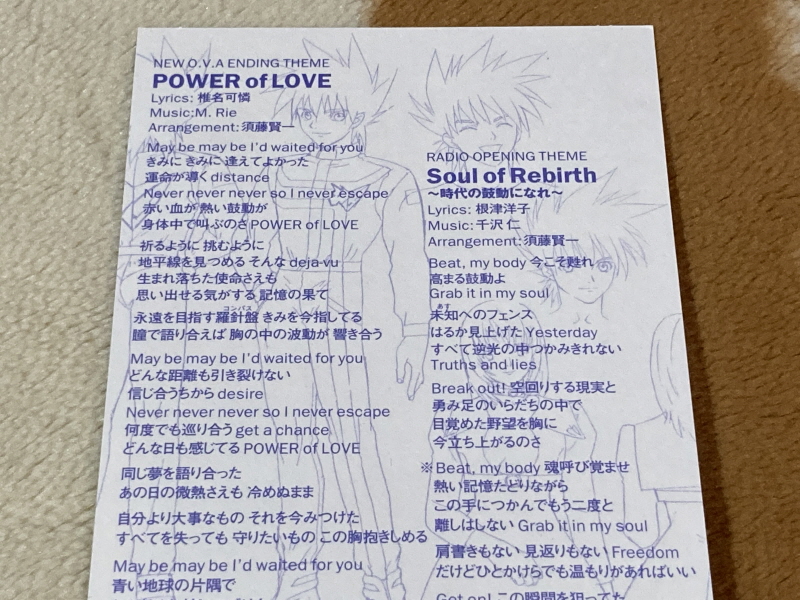 NEW O.V.A ENDING THEME
POWER of LOVE
Lyrics: 椎名可憐
Music:M. Rie
Arrangement:須藤賢一
May be may be I'd waited for you
きみに きみに 逢えてよかった
運命が導くdistance
Never never never so I never escape
赤い血が 熱い鼓動が
身体中で叫ぶのさ POWER of LOVE
祈るように 挑むように
地平線を見つめる そんな deja-vu
生まれ落ちた使命さえも
思い出せる気がする 記憶の果て
永遠を目指す羅針盤 きみを今指してる
コンパス
瞳で語り合えば 胸の中の波動が 響き合う
May be may be I'd waited for you
どんな距離も引き裂けない
信じ合うちから desire
Never never never so I never escape
何度でも巡り合う get a chance
どんな日も感じてる POWER of LOVE
同じ夢を語り合った
あの日の微熱さえも 冷めぬまま
自分より大事なもの それを今みつけた
すべてを失っても 守りたいもの この胸抱きしめる
May be may be I'd waited for you
青い地球の片隅で
RADIO OPENING THEME
Soul of Rebirth
～時代の鼓動になれ～
Lyrics: 根津洋子
Music:千沢 仁
Arrangement:須藤賢一
Beat, my body 今こそ甦れ
高まる鼓動よ
Grab it in my soul
未知へのフェンス
あす
はるか見上げた Yesterday
すべて逆光の中つかみきれない
Truths and lies
Break out! 空回りする現実と
勇み足のいらだちの中で
目覚めた野望を胸に
今立ち上がるのさ
※Beat, my body 魂呼び覚ませ
熱い記憶たどりながら
この手につかんでもう二度と
離しはしない Grab it in my soul
肩書きもない 見返りもない Freedom
だけどひとかけらでも温もりがあればいい
Get on! この瞬間を狙ってた